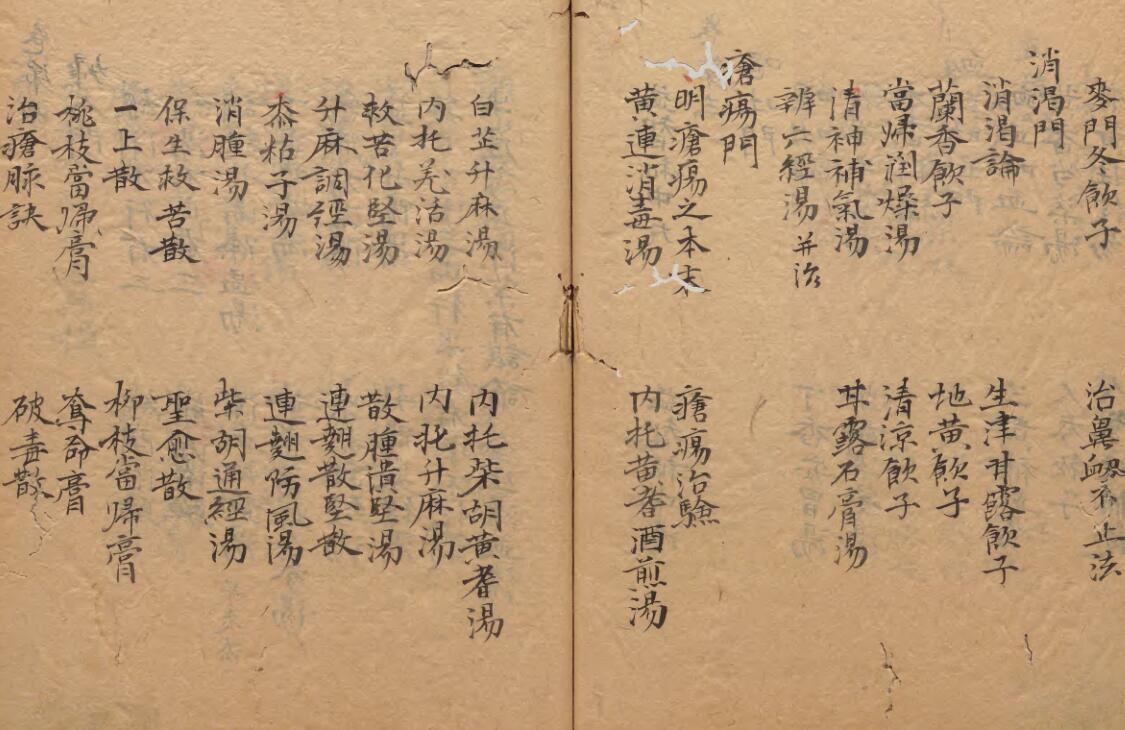 麥門冬飲子　治鼻衂不止法
消渴門
消渴論　生津甘露飲子
蘭香飲子　地黃飲子
當歸潤燥湯　清涼飲子
清神補氣湯　甘露石膏湯
辨六經湯并治
瘡瘍門
明瘡瘍之本末　瘡瘍治驗
黃連消毒湯　內托黃耆酒煎湯
白芷升麻湯　內托柴胡黃耆湯
內托羌活湯　內托升麻湯
救苦化堅湯　散腫潰堅湯
升麻調經湯　連翹散堅散
黍粘子湯　連翹防風湯
消腫湯　柴胡通經湯
保生救苦散　聖愈散
一上散　柳枝當歸膏
桃枝當歸膏　奪命膏
治瘡脉訣　破毒散